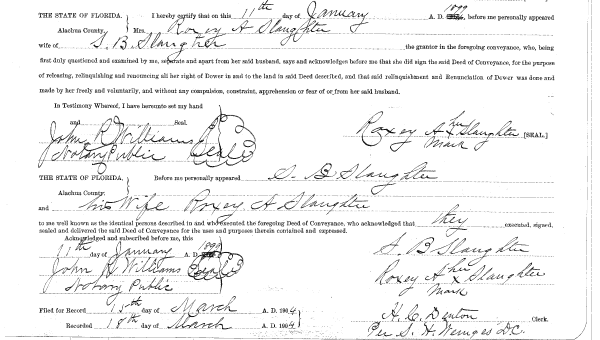 1899
THE STATE OF FLORIDA, } I hereby certify that on this 11th day of January A. D. , before me personally appeared
Alachua County. Mrs. Roxey A Slaughter
wife of S. B. Slaughter the grantor in the foregoing conveyance, who, being
first duly questioned and examined by me, separate and apart from her said husband, says and acknowledges before me that she did sign the said Deed of Conveyance, for the purpose
of releasing, relinquishing and renouncing all her right of Dower in and to the land in said Deed described, and that said relinquishment and Renunciation of Dower was done and
made by her freely and voluntarily, and without any compulsion, constraint, apprehension or fear of or from her said husband.
In Testimony Whereof, I have hereunto set my hand
and Seal.
John R Williams
Notary Public
Seal
her
Roxey A x Slaughter [SEAL.]
Mark
THE STATE OF FLORIDA, } Before me personally appeared S. B Slaughter
Alachua County.
and his Wife Roxey A Slaughter
to me well known as the identical persons described in and who executed the foregoing Deed of Conveyance, who acknowledged that they executed, signed,
sealed and delivered the said Deed of Conveyance for the uses and purposes therein contained and expressed.
Acknowledged and subscribed before me, this
11th day of January A. D. 1899
John R Williams Seal
Notary Public
S. B Slaughter
her
Roxey A x Slaughter
Mark
Filed for Record 15th day of March A. D. 1904
Recorded 18th day of March A. D. 1904
H. C. Denton Clerk.
Per S. H. Wienges D.C.